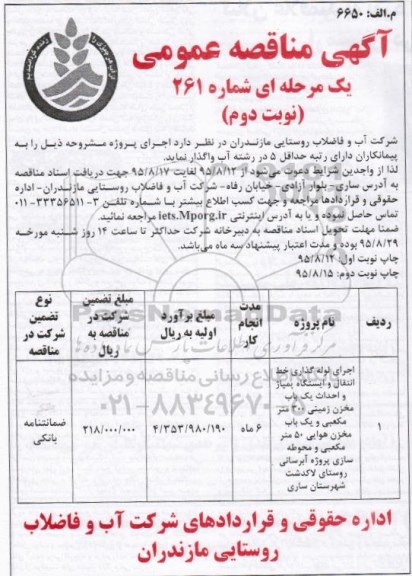 م.الف: ۶۶۵۰
آگهی مناقصه عمومی
یک مرحله ای شماره ۲۶۱
(نوبت دوم)
شرکت آب و فاضلاب روستایی مازندران در نظر دارد اجرای پروژه مشروحه ذیل را به
پیمانکاران دارای رتبه حداقل ۵ در رشته آب واگذار نماید.
لذا از واجدین شرایط دعوت می‌شود از ۹۵/۸/۱۲ لغایت ۹۵/۸/۱۷ جهت دریافت اسناد مناقصه
به آدرس ساری- بلوار آزادی- خیابان رفاه- شرکت آب و فاضلاب روستایی مازندران- اداره
حقوقی و قراردادها مراجعه و جهت کسب اطلاع بیشتر با شماره تلفن ۳-۳۳۳۵۶۵۱۱-۰۱۱
تماس حاصل نموده و یا به آدرس اینترنتی iets.Mporg.ir مراجعه نمائید.
ضمنا مهلت تحویل اسناد مناقصه به دبیرخانه شرکت حداکثر تا ساعت ۱۴ روز شنبه مورخه
۹۵/۸/۲۹ بوده و مدت اعتبار پیشنهاد سه ماه می‌باشد.
چاپ نوبت اول: ۹۵/۸/۱۲
چاپ نوبت دوم: ۹۵/۸/۱۵
ردیف
نام پروژه
مدت
انجام
کار
مبلغ برآورد
اولیه به ریال
مبلغ تضمین
شرکت در
مناقصه به
ریال
نوع
تضمین
شرکت در
مناقصه
۱
اجرای لوله گذاری خط
انتقال و ایستگاه پمپاژ
و احداث یک باب
مخزن زمینی ۳۰۰ متر
مکعبی و یک باب
مخزن هوایی ۵۰ متر
مکعبی و محوطه
سازی پروژه آبرسانی
روستای لاکدشت
شهرستان ساری
۶ ماه
۴/۳۵۳/۹۸۰/۱۹۰
۲۱۸/۰۰۰/۰۰۰
ضمانتنامه
بانکی
۰۲۱-۸۸۳۴۹۶۷۰
اداره حقوقی و قراردادهای شرکت آب و فاضلاب
روستایی مازندران